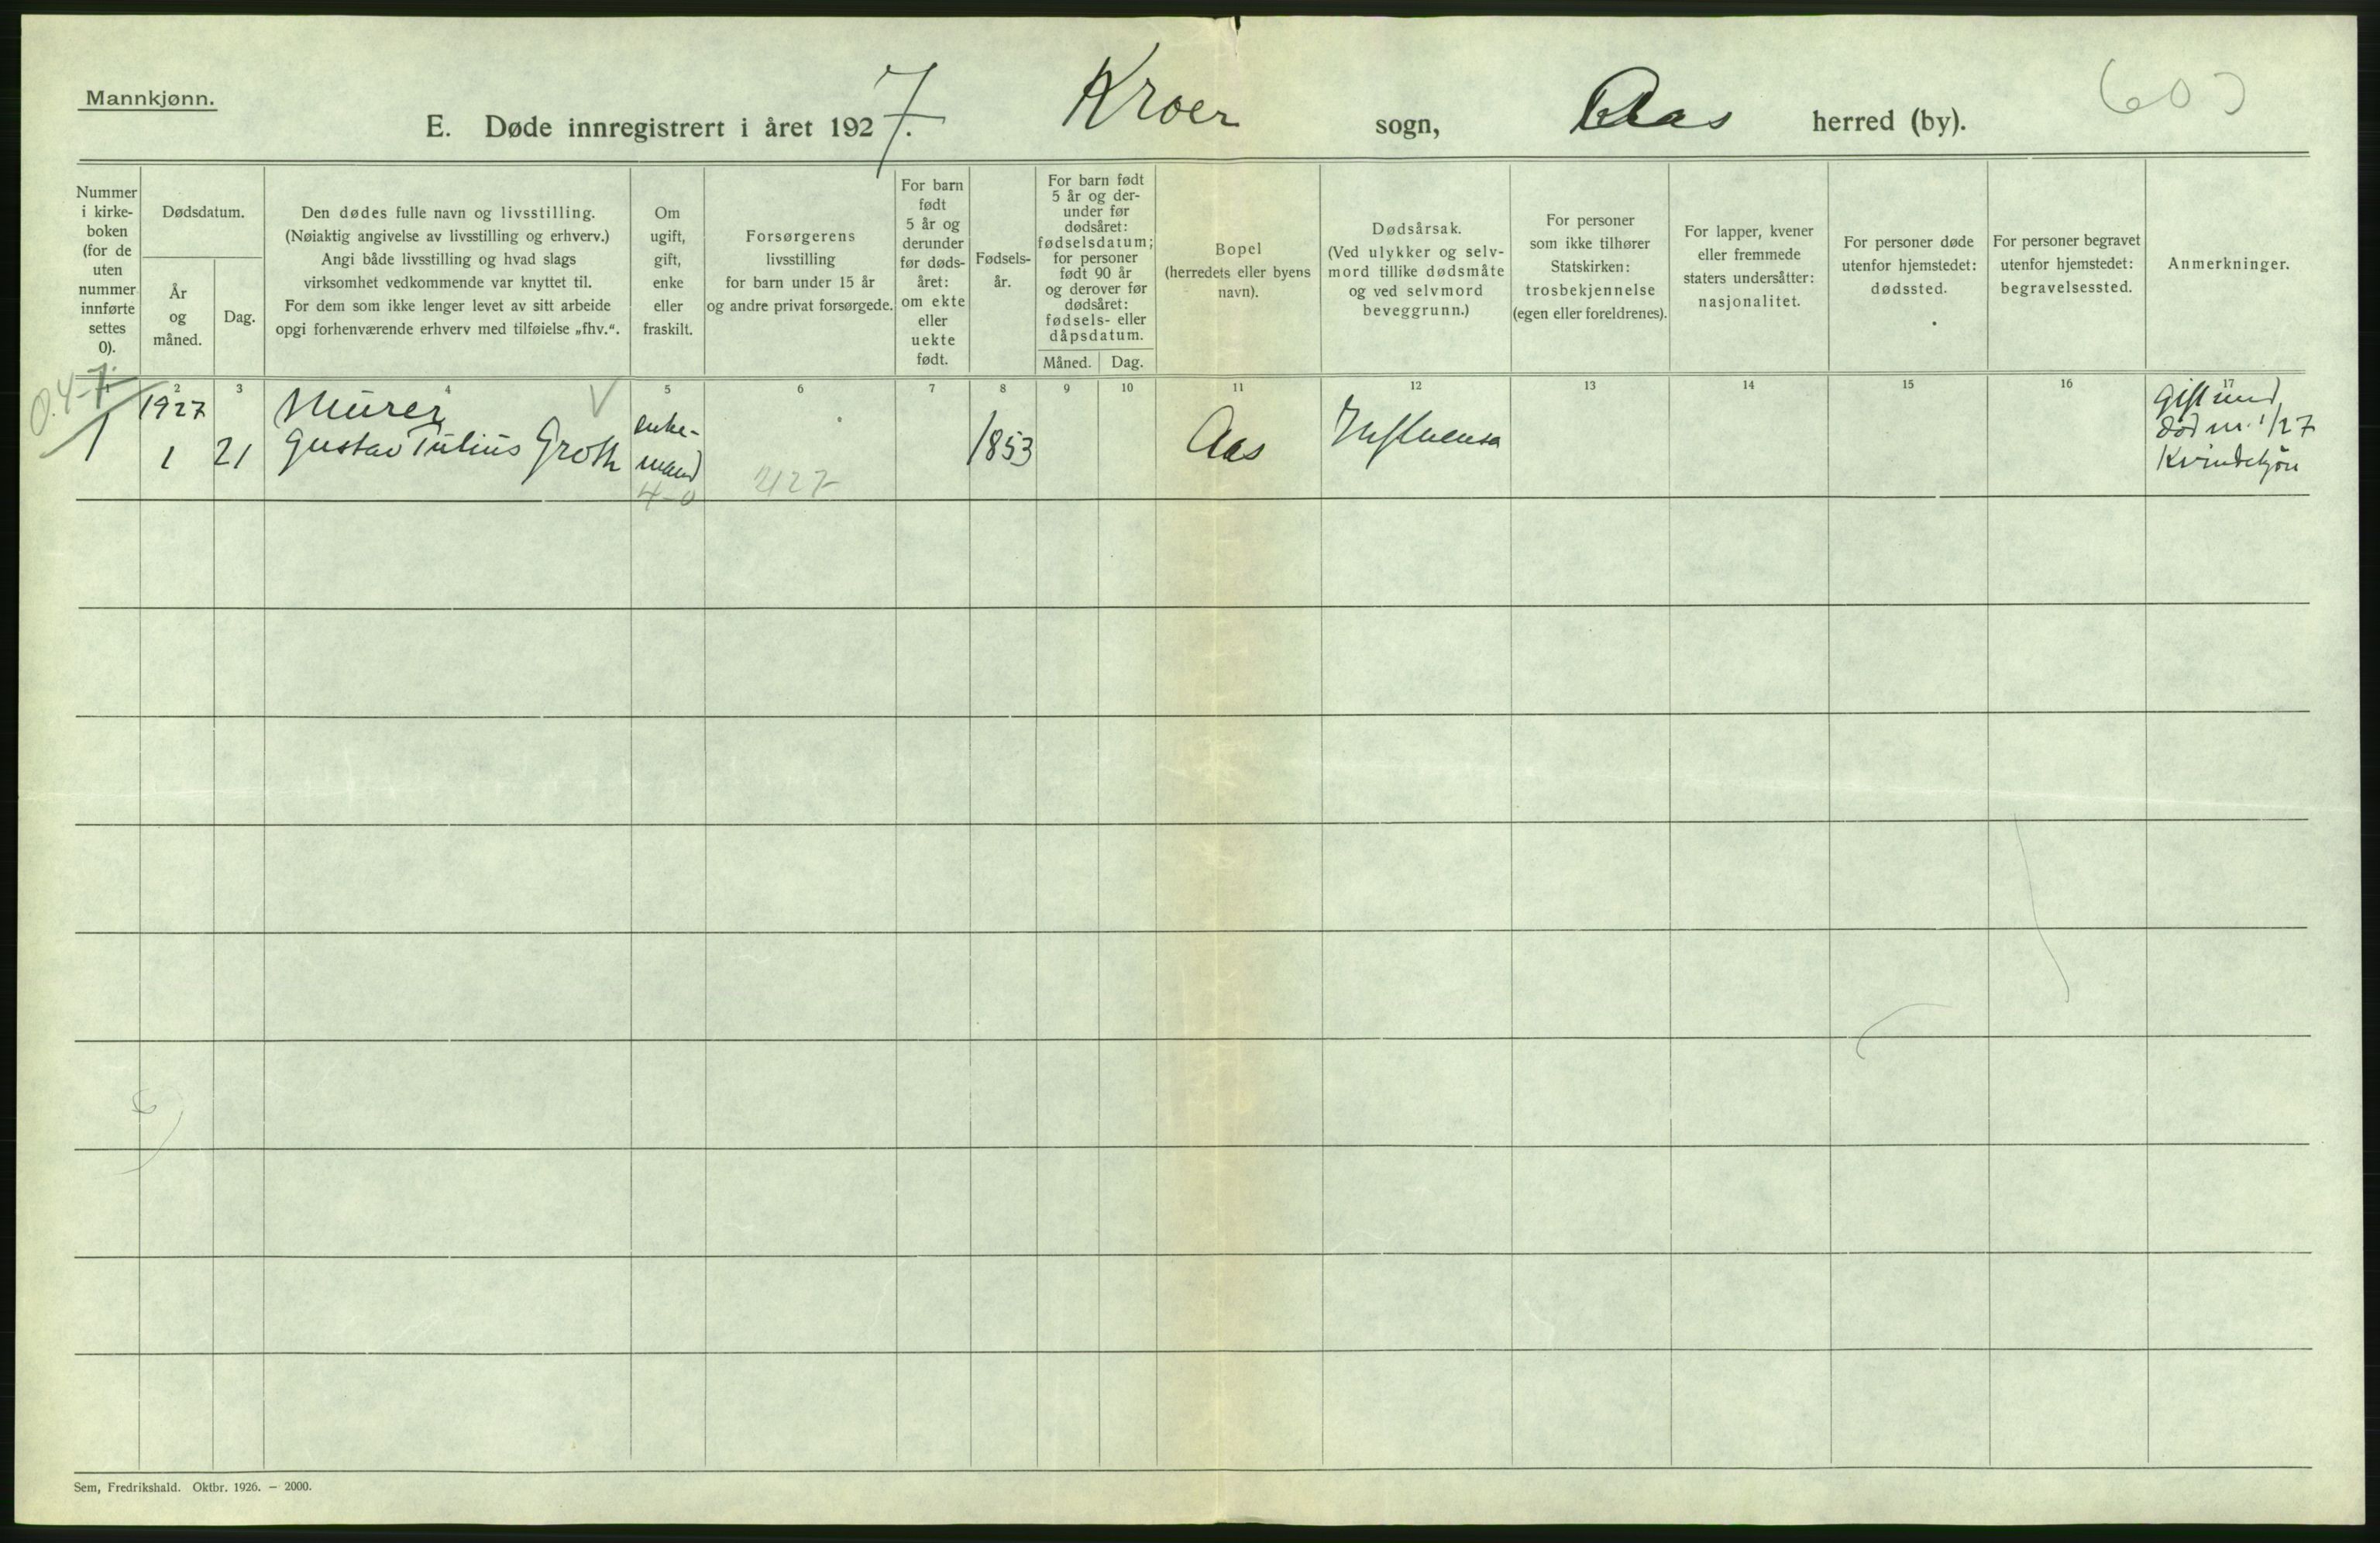 Mannkjønn.
E. Døde innregistrert i året 1927. Kroer sogn, Aas herred (by).
Nummer i kirke-boken (for de uten nummer innførte settes 0).
Dødsdatum.
År og måned.
Dag.
Den dødes fulle navn og livsstilling.
(Nøiaktig angivelse av livsstilling og erhverv.)
Angi både livsstilling og hvad slags
virksomhet vedkommende var knyttet til.
For dem som ikke lenger levet av sitt arbeide
opgi forhenværende erhverv med tilføielse „fhv.“.
Om
ugift,
gift,
enke
eller
fraskilt.
Forsørgerens
livsstilling
for barn under 15 år
og andre privat forsørgede.
For barn
født
5 år og
derunder
før døds-
året:
om ekte
eller
uekte
født.
Fødsels-
år.
For barn født
5 år og der-
under før
dødsåret:
fødselsdatum;
for personer
født 90 år
og derover før
dødsåret:
fødsels- eller
dåpsdatum.
Måned. Dag.
Bopel
(herredets eller byens
navn).
Dødsårsak.
(Ved ulykker og selv-
mord tillike dødsmåte
og ved selvmord
beveggrunn.)
For personer
som ikke tilhører
Statskirken:
trosbekjennelse
(egen eller foreldrenes).
For lapper, kvener
eller fremmede
staters undersåtter:
nasjonalitet.
For personer døde
utenfor hjemstedet:
dødssted.
For personer begravet
utenfor hjemstedet:
begravelsessted.
Anmerkninger.
1 2 3 4 5 6 7 8 9 10 11 12 13 14 15 16 17
0.4-7
1
1927
1 21
Murer
Gustav Julius Groth
enke-
mand
4-0
427
1853
Aas
Influensa
Gift med
død nr. 1/27
Kvindekjøn
Sem, Fredrikshald. Oktbr. 1926. — 2000.